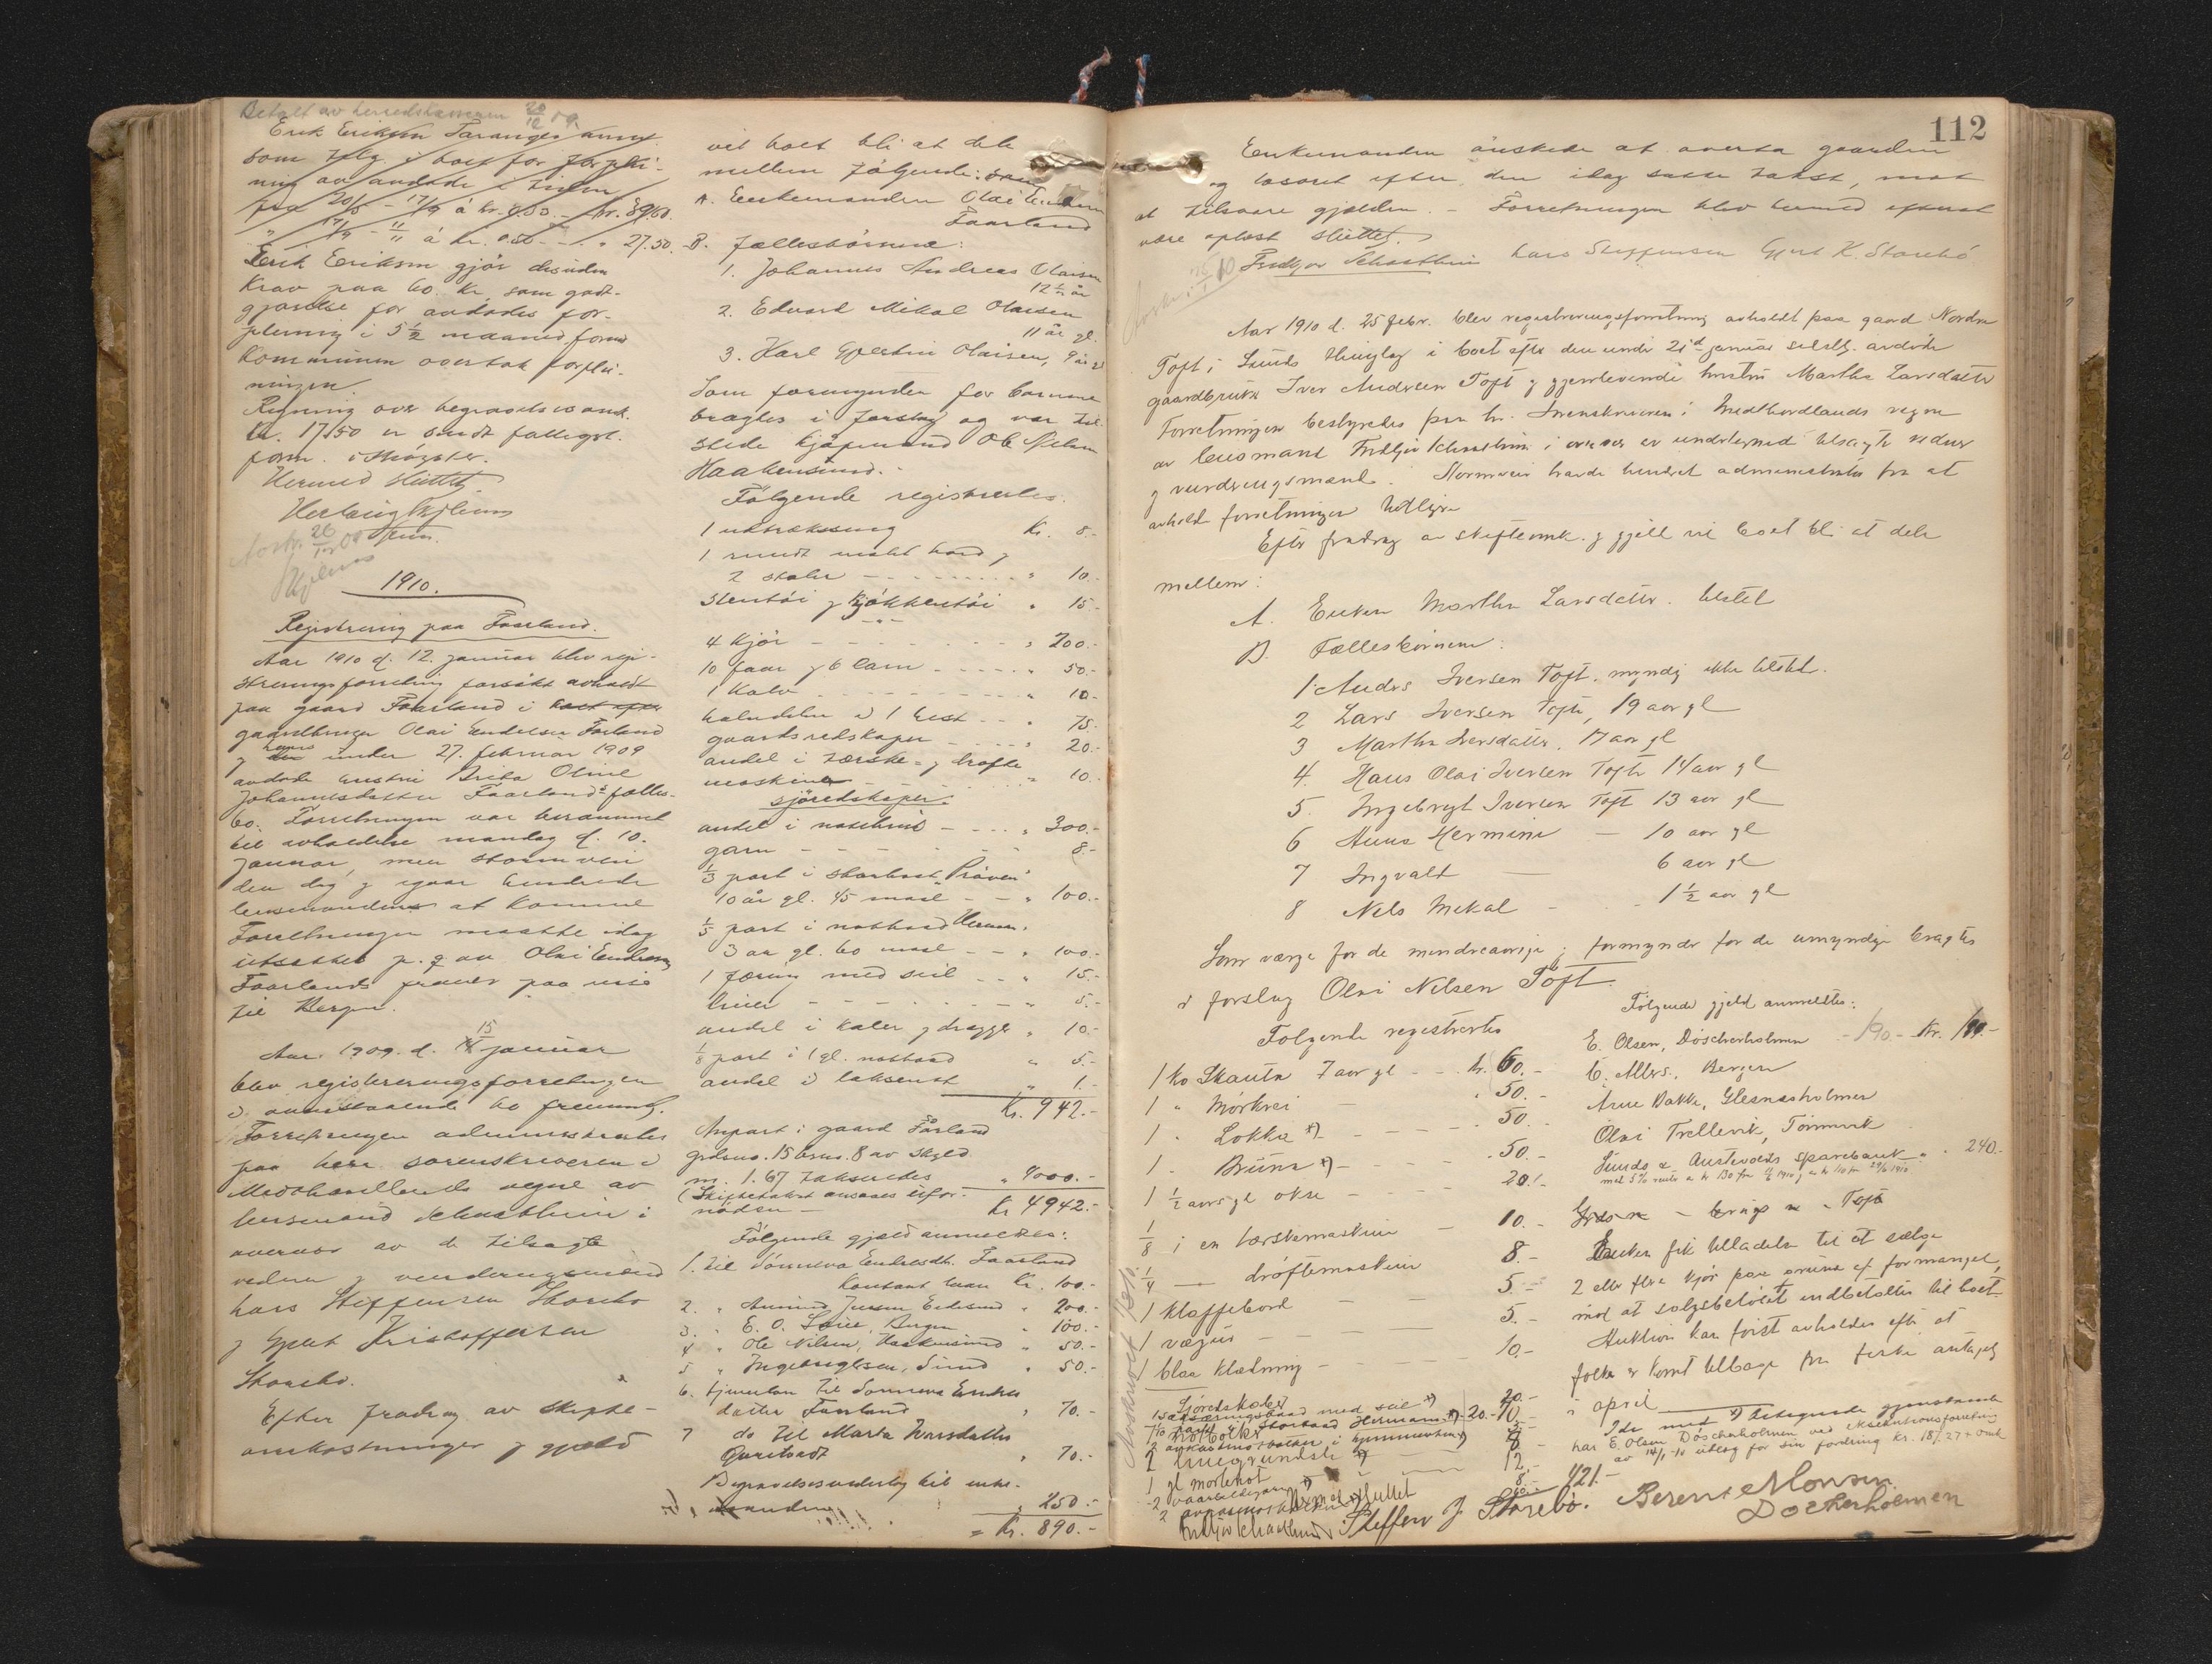 Betalt av herredskassen 20/12 09.
Erik Eriksen Taranger
som følg. i boet for forplei-
ning av avdøde i tiden
fra 20/5 - 17/9 á kr. 0.50 - kr.
" 17/9 - 11/11 á kr. 0.50 - - " 27.50
Erik Eriksen gjör desuden
Krav paa 60. Kr som godt-
gjørelse for avdødes for-
pleining i 5 1/2 maaned, förend
Kommunen overtok forplei-
ningen.
Regning over begravelsesomk.
kr. 17.50 er sendt fattigst.
form. i Møgster.
Hermed sluttet.
1910.
Registrering paa Faarland.
Aar 1910 d. 12. januar blev regi-
streringsforretning forsökt avholdt
paa gaard Faarland i boet efter
gaardbruger Olai Endresen Farland
og hans under 27. februar 1909
avdøde hustru Brita Oline
Johannesdatter Faarlands fælles-
bo. Forretningen var berammet
til avholdelse mandag d. 10.
januar, men storm veir
den dag og igaar hindrede
lensmanden at komme
Forretningen maatte idag
utsættes p. g. av Olai Endresen
Faarlands fravær paa reise
til Bergen.
Aar. 1909. d. 15 januar
blev registreringsforretningen
i ovenstaaende bo fremmet.
Forretningen administrertes
paa herr sorenskriveren i
Midthordlands vegne av
lensmand Schastlum i
overvær av de tilsagte
vidner og vurderingsmænd
Lars Steffensen Storebø
og Gjert Kristoffersen
Storebø.
Efter fradrag av skifte-
omkostninger og gjæld
vil boet bli at dele
mellem følgende:
A. Enkemanden Olai Endresen
Faarland
B. Fællesbörnene:
1. Johannes Andreas Olaisen
12 1/2 år
2. Edvard Mikal Olaisen
11 år gl.
3. Karl Gjertin Olaisen, 9 år gl
Som formynder for barnene
bragtes i forslag og var til
stede kjøpmand Ole Nilsen
Haakensund.
Følgende registreertes.
1 uktræksseng Kr. 8.-
1 rundt malet bord og
2 stoler - - - " 10.-
Stentöi og kjøkkentöi " 15.-
4 kjör - - - " 200.-
10 faar og 6 lam - - - " 50.-
1 Kalv - - - " 10.-
halvdelen i 1 hest - - " 75.-
gaardsredskaper - - - " 20.-
andel i tærske- og drøfte
maskiner - - - " 10.-
sjöredskaper:
andel i notebruk - - - " 300.-
garn - - - 8.-
1/3 part i storbaat "Pröven"
10 år gl. 45 maal - - " 100.-
1/5 part i notbaad Herman.
3 aar gl. 60 maal - - " 100.-
1 færing med seil - - " 15.-
liner - - - " 5.-
andel i kaler og dragger " 10.-
1/8 part i 1 gl. notbaad " 5.-
andel i laksenot " 1.-
Kr. 942.-
Anpart i gaard Fårland
grdsno. 15 brno. 8 av skyld
m. 1.67 takseredes " 4000.-
(Skiftetakst ansaaes ufor-
nöden - Kr 4942.-
Følgende gjæld anmeldtes:
1. til Sönneva Endresdtr. Faarland
Kontant laan Kr. 100.-
2. " " 200.-
3. " E. O. Bergen " 100.-
4 " Ole Nilsen, Haakensund " 50.-
5 " Ingebrigtsen, Sund " 50.-
6. tjenerlön til Sönneva Endres
datter Faarland " 70.-
7 do til Marta
" 70.-
Begravelsesutlæg til enke-
manden " 250.-
= Kr. 890.-
112
Enkemanden önskede at overta gaarden
og løsøret efter den idag satte takst, mot
at tilsvare gjælden. - Forretningen blev hermed efterat
være oplæst sluttet.
Lars Steffensen Gjert K. Storebö
Aar 1910 d. 25 febr. blev registreringsforretning avholdt paa gaard Nordre
Toft i Sunds thinglag i boet efter den under 21de januar sidstl. avdøde
gaardbruker Iver Andersen Toft og gjenlevende hustru Martha Larsdatter
Forretningen bestyredes paa hr. Sorenskriveren i Midthordlands vegne
av lensmand i overvær av undertegnede tilsagte vidner
og vurderingsmænd. Stormveir havde hindret administrator fra at
avholde forretningen tidligere
Efter fradrag av skifteomk. og gjæld vil boet bli at dele
mellem:
A. Enken Martha Larsdatter. tilsted
B. Fællesbörnene:
1. Anders Iversen Toft. myndig ikke tilsted.
2 Lars Iversen Toft, 19 aar gl
3 Martha Iversdatter, 17 aar gl
4. Hans Olai Iversen Toft 14 aar gl
5. Ingebrigt Iversen Toft 13 aar gl
6 Anna Hermine - 10 aar gl
7 Ingvald - 6 aar gl
8 Nels Mikal - - 1 1/2 aar gl
Som værge for de mindreaarige og formynder for de umyndige bragtes
i forslag Olai Nilsen Toft.
Følgende registrertes
1 ko Skauta 7 aar gl - - kr. 60.-
1 " Mørkrei - " 50.-
1 " Lokka *) - - - 50.-
1 " Bruna *) - - - 50.-
1 1/2 aars gl okse - - - 20.-
1/8 i en tærskemaskine - 10.-
1/4 — drøftemaskine 8.-
1 klaffebord - - 5.-
1 vægur - - - 5.-
1 blaa klædning - - - 10.-
Sjöredskaber
med seil *) 20.-
Herman *) 20.-
2 i
1 *) 12.-
1 gl mortenot 8.-
2 vaarsildgarn *)
421.-
Hermed sluttet
Følgende gjeld anmeldtes:
E. Olsen, Döscherholmen - 190.- Kr.
C. Allers., Bergen
Arne Bakke, Glesnesholmen
Olai Trellevik,
Sunds & Austevolds sparebank " " 240.-
Grds n - brugs n " Toft
Enken fik tilladelse til at sælge
2 eller flere kjör paa grund af formangel,
mod at salgsbeløbet indbetaltes til boet.
Auktion kan først avholdes efter at
folk er komt tilbage fra fiske antagelig
i april
I de med *) betegnede gjenstande
har E. Olsen Döscherholmen ved eksekutionsforretning
av 14/1-10 utlæg for sin fordring kr. 187.27 + omk
Steffen J. Storebö. Berent Monsen
Döckerholmen